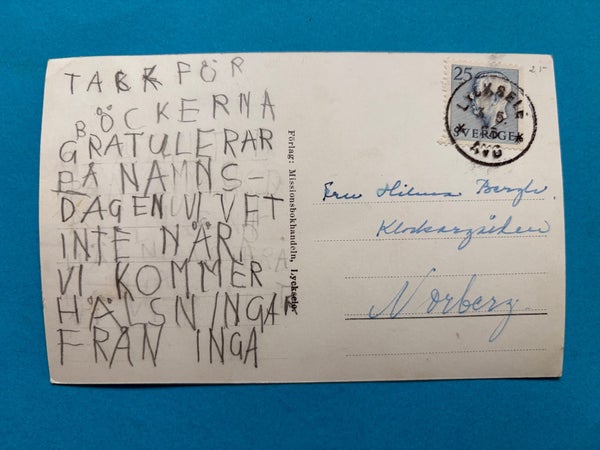 TACK FÖR
BÖCKERNA
GRATULERAR
PÅ NAMNS-
DAGEN VI VET
INTE NÄR.
VI KOMMER
HÄLSNINGAR
FRÅN INGA
Förlag: Missionsbokhandeln, Lycksele
25
SVERIGE
LYCKSELE
5.
AVG
25
Fru Hilma
Klockargården
Norberg